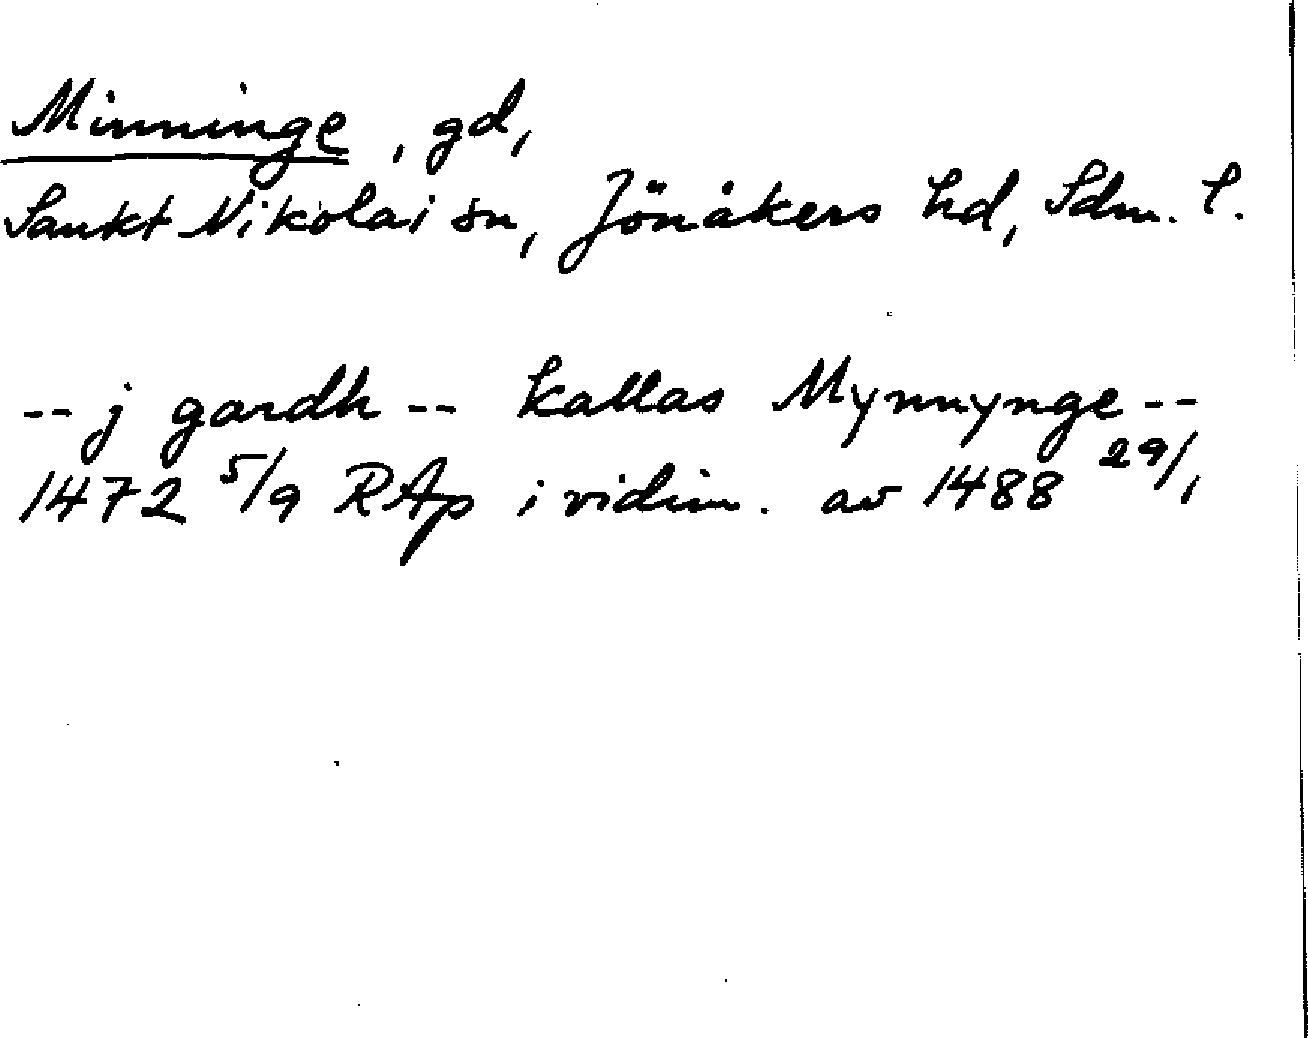 Minninge, gd,
Sankt Nikolai sn, Jönåkers hd, Sdm. l.
-- j gardh -- kallas Mynnynge --
1472 5/9 RAp i vidim. av 1488 29/1